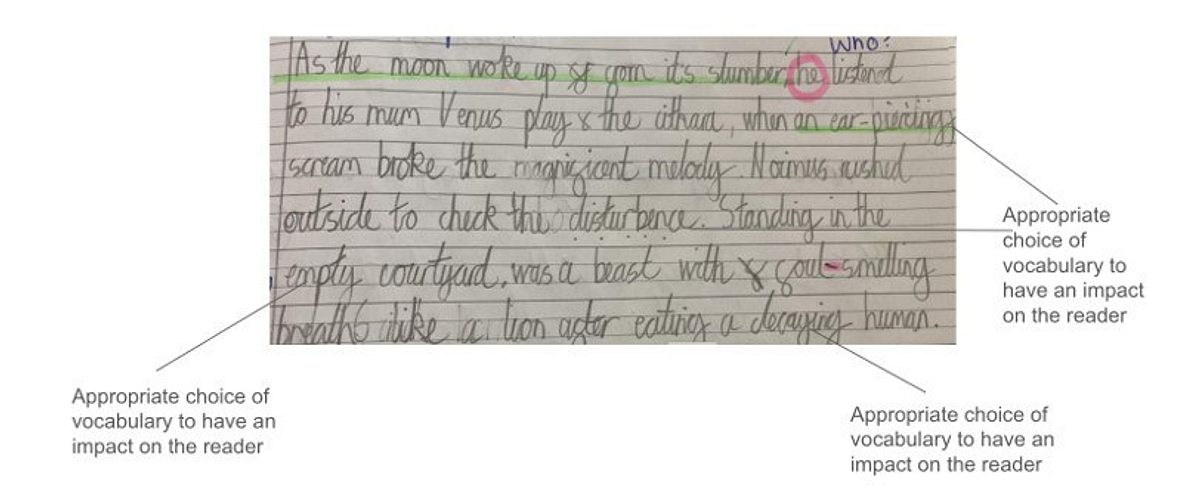 Who?
As the moon woke up from it's slumber, he listend
to his mum Venus play the cithara, when an ear-piercing
scream broke the magnificent melody. Noimus rushed
outside to check the disturbence. Standing in the
empty courtyard, was a beast with foul-smelling
breath like a lion after eating a decaying human.
Appropriate
choice of
vocabulary to
have an impact
on the reader
Appropriate choice of
vocabulary to have an
impact on the reader
Appropriate choice of
vocabulary to have an
impact on the reader